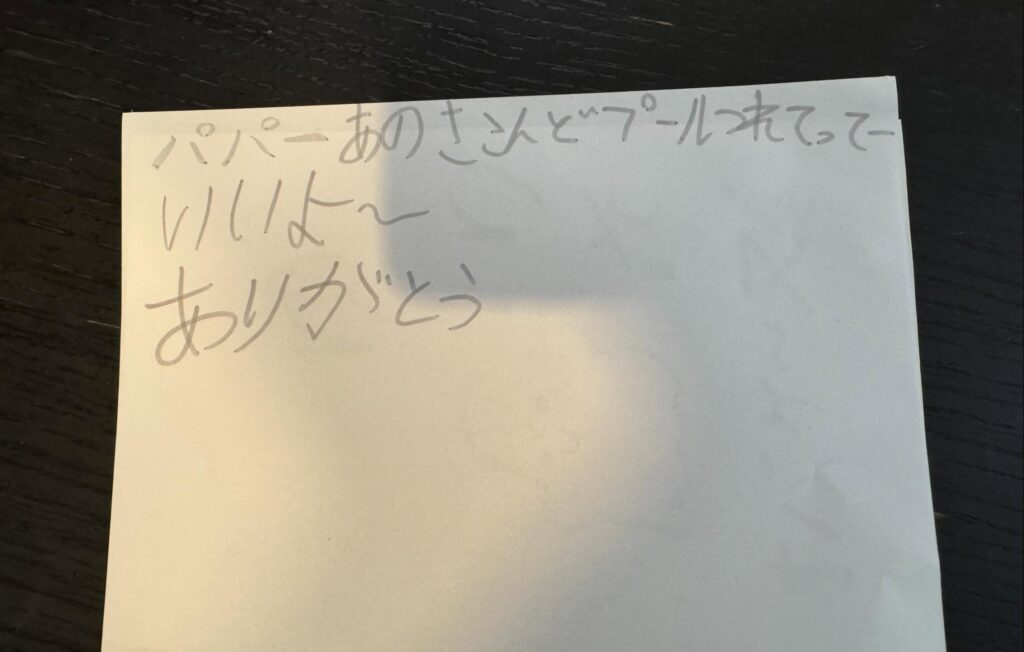 パパーあのさこんどプールつれてってー
いいよ〜
ありがとう